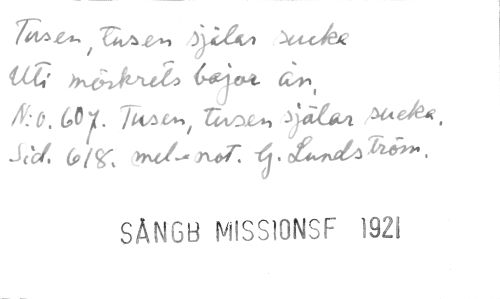 Tusen, tusen själar sucka
Uti mörkrets bojor än,
N:o. 607. Tusen, tusen själar sucka.
Sid. 618. mel-not. G. Lundström.
SÅNGB MISSIONSF 1921